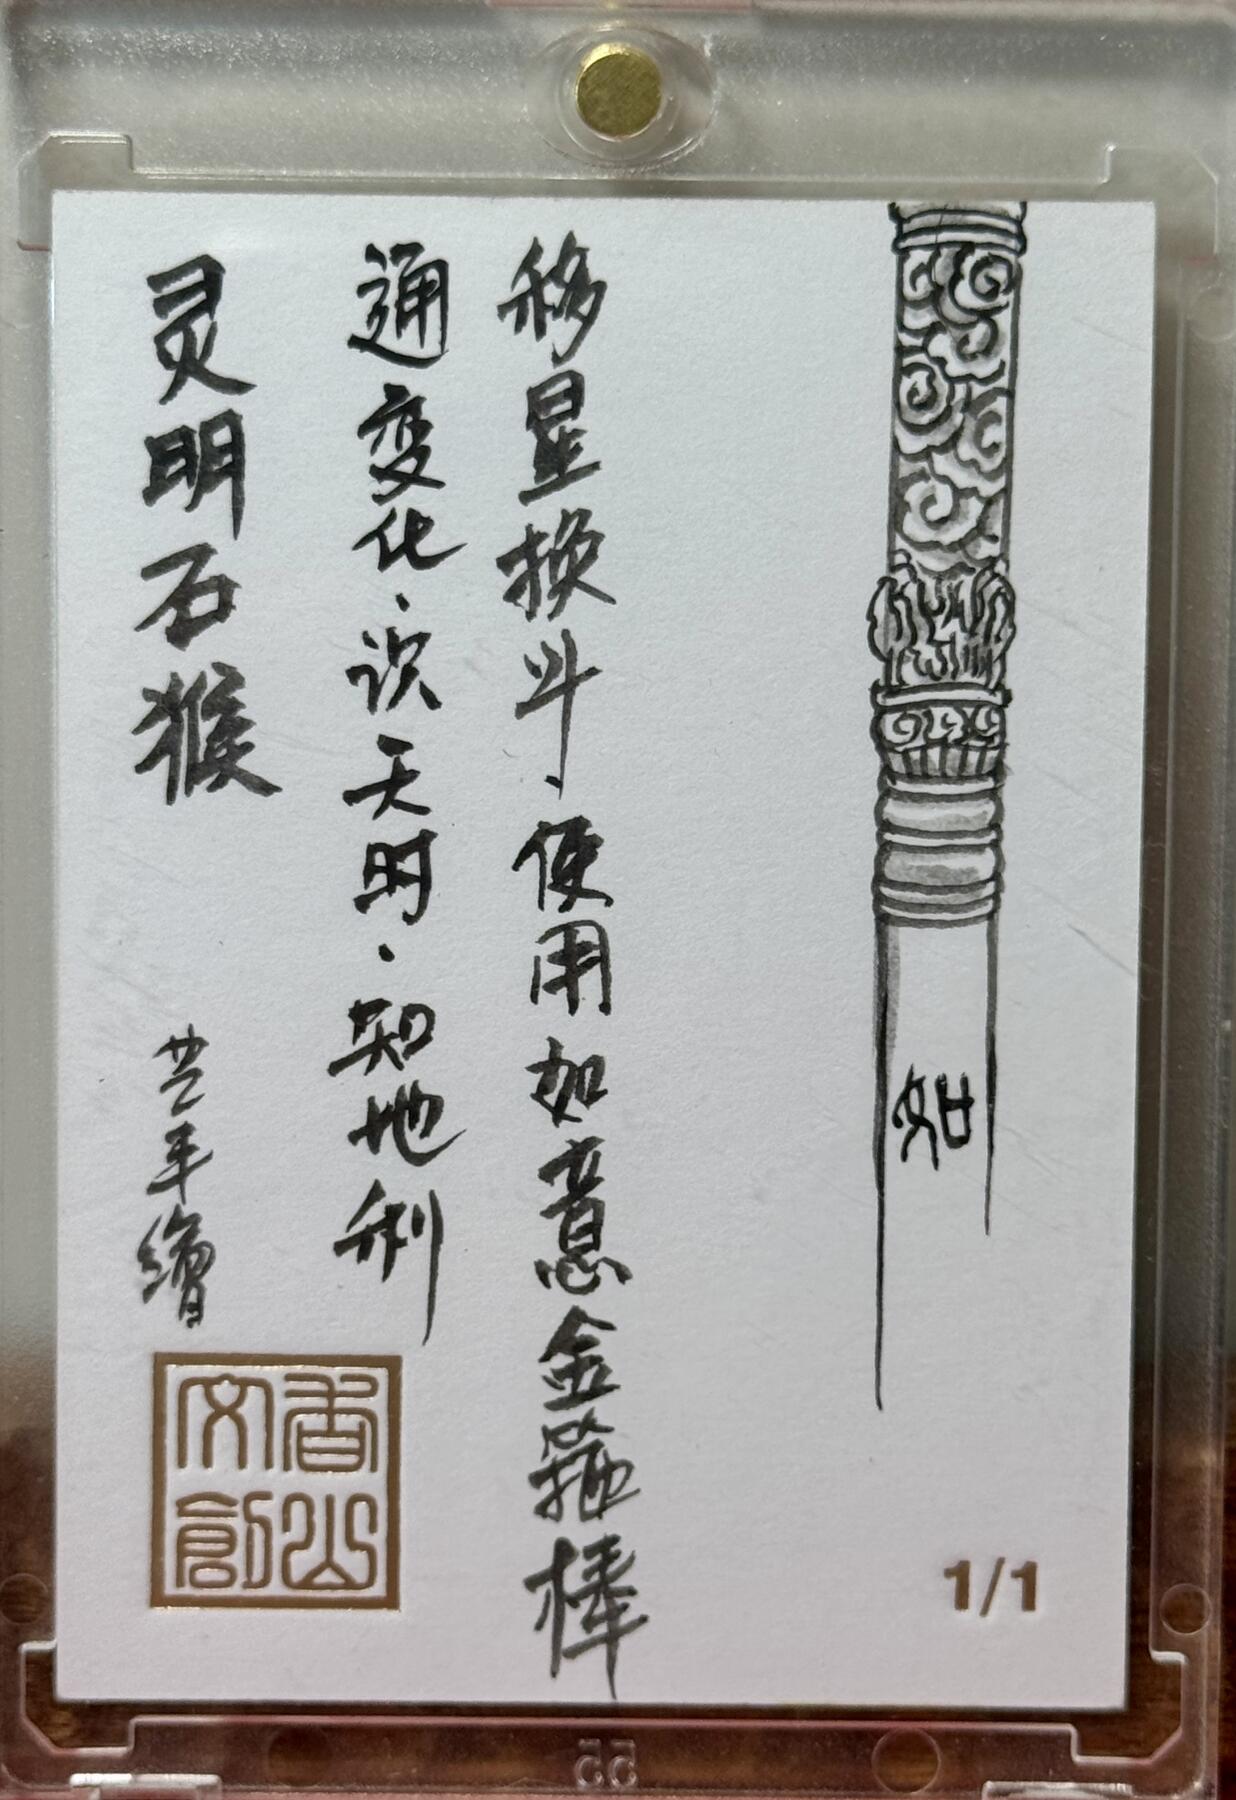 如
移星换斗·使用如意金箍棒
通变化·识天时·知地利
灵明石猴
香山文創
1/1
55